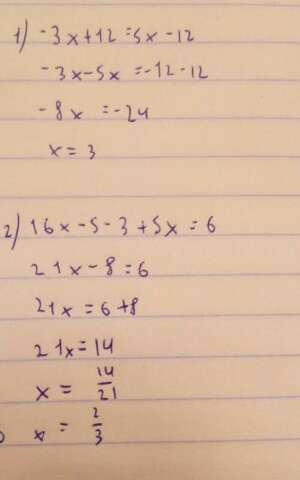 1) -3x+12=5x-12
-3x-5x=-12-12
-8x=-24
x=3
2) 16x-5-3+5x=6
21x-8=6
21x=6+8
21x=14
x=14/21
x=2/3